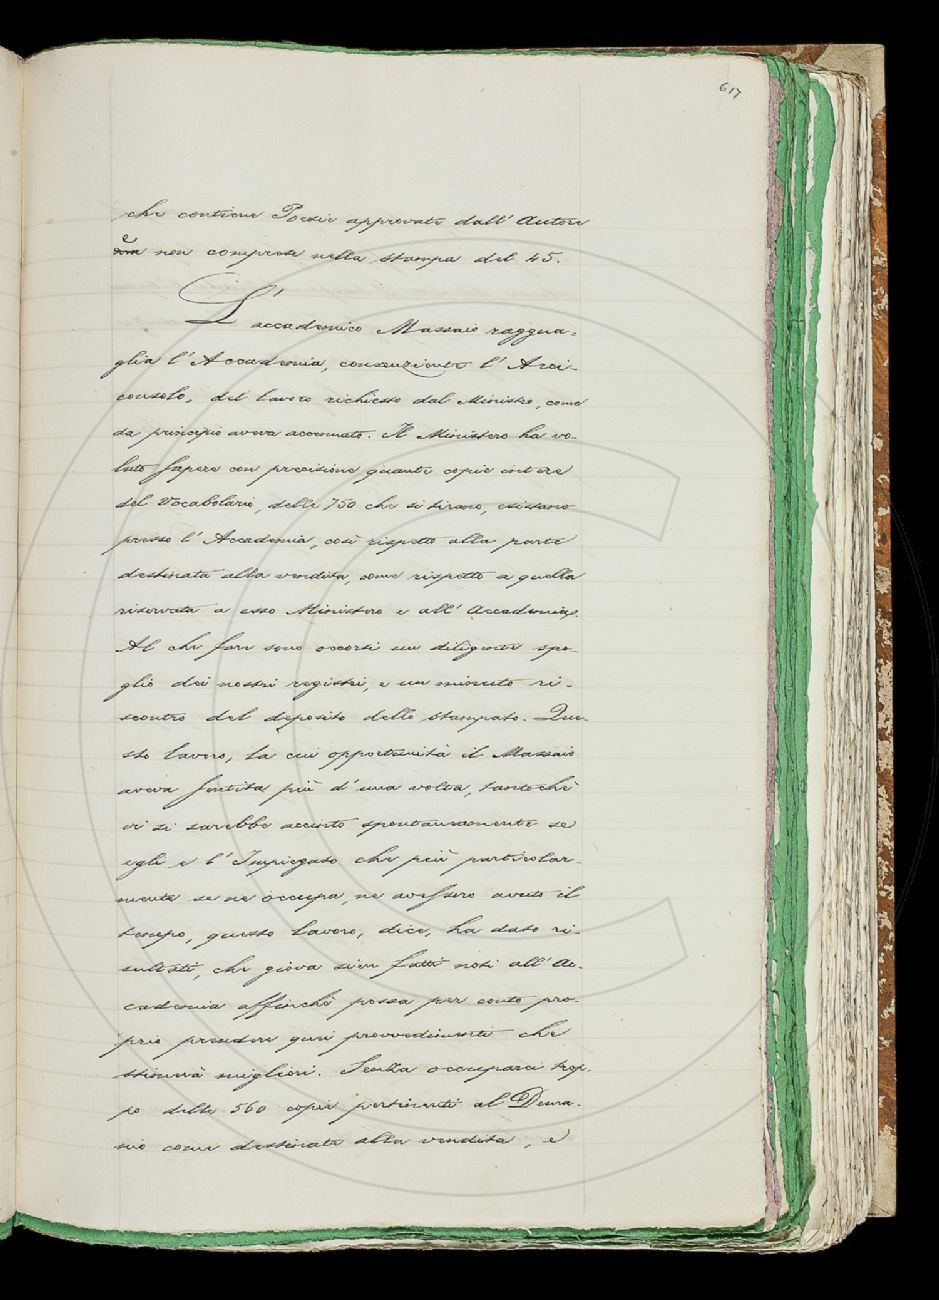 617
che contiene Poesie approvate dall' Autore
e non comprese nella stampa del 45.
L' accademico Massaio raggua-
glia l' Accademia, consenziente l' Arci-
consolo, del lavoro richiesto dal Ministro, come
da principio aveva accennato. Il Ministero ha vo-
luto sapere con precisione quante copie intere
del Vocabolario, delle 750 che si tirano, esistano
presso l' Accademia, così rispetto alla parte
destinata alla vendita, come rispetto a quella
riservata a esso Ministero e all' Accademia.
Al che fare sono occorsi un diligente spo-
glio dei nostri registri, e un minuto ri-
scontro del deposito dello stampato. Que-
sto lavoro, la cui opportunità il Massaio
aveva sentita più d' una volta, tantochè
vi si sarebbe accinto spontaneamente se
egli e l' Impiegato che più particolar-
mente se ne occupa, ne avessero avuto il
tempo, questo lavoro, dico, ha dato ri-
sultati, che giova sien fatti noti all' Ac-
cademia affinchè possa per conto pro-
prio prendere quei provvedimenti che
stimerà migliori. Senza occuparci trop-
po delle 560 copie pertinenti al Dema-
nio come destinate alla vendita, e